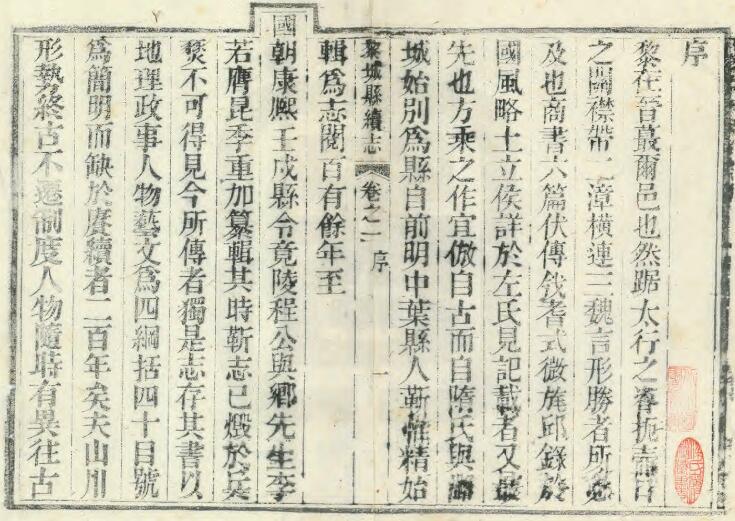 序
黎在晉蕞爾邑也然踞太行之脊扼壺口
之關襟帶二漳橫連三魏言形勝者所必
及也商書六篇伏傳戡耆式微旄邱錄於
國風略土立侯詳於左氏見記載者又最
先也方乘之作宜倣自古而自隋氏與潞
城始別爲縣自前明中葉縣人靳惟精始
黎城縣續志 卷之一 序 一
輯爲志閱百有餘年至
國朝康熙壬戌縣令竟陵程公與鄉先生李
若膺昆季重加纂輯其時靳志已燬於兵
燹不可得見今所傳者獨是志存其書以
地理政事人物藝文爲四綱括四十目號
爲簡明而缺於賡續者二百年矣夫山川
形勢終古不遷制度人物隨時有異往古